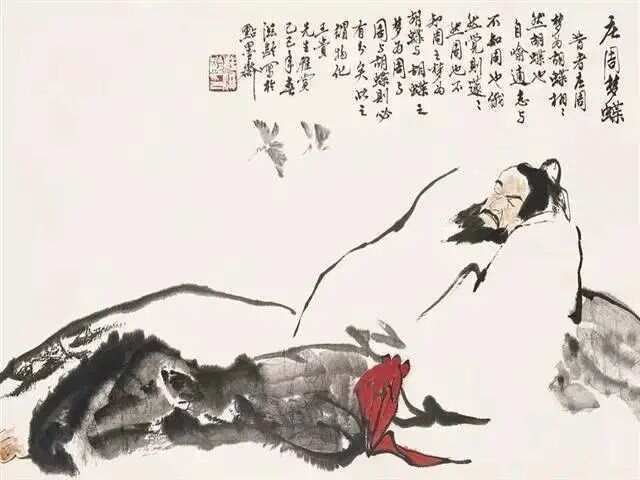 庄周梦蝶
昔者庄周
梦为胡蝶栩〻
然胡蝶也
自喻適志与
不知周也俄
然觉则蘧〻
然周也不
知周之梦为
胡蝶与胡蝶之
梦为周与
周与胡蝶则必
有分矣此之
谓物化
先生雅赏
己巳年春
写於
點墨齋